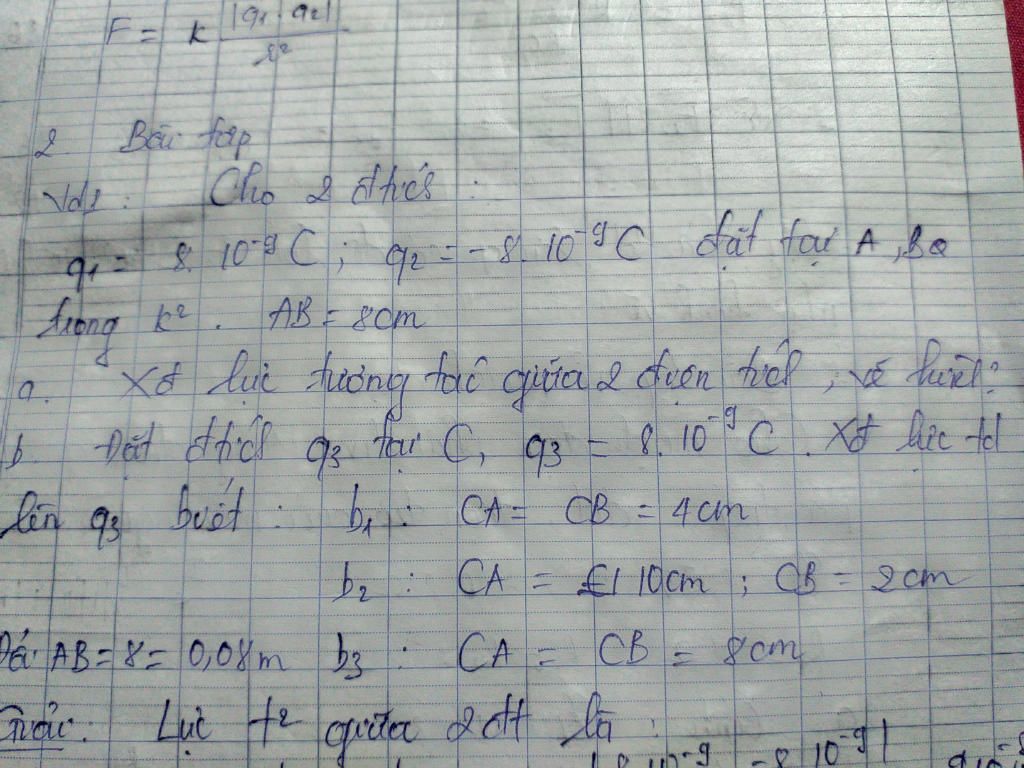 F = k |q1 . q2| / r²
2 Bài tập
Vd1: Cho 2 đtích :
q1 = 8.10⁻⁹ C ; q2 = -8.10⁻⁹ C đặt tại A, B
trong k². AB = 8cm
a. Xđ lực tương tác giữa 2 điện tích, vẽ hình?
b Đặt đtích q3 tại C, q3 = 8.10⁻⁹ C. Xđ lực td
lên q3 biết : b1 : CA = CB = 4cm
b2 : CA = 10cm ; CB = 2cm
Đổi AB = 8 = 0,08m b3 : CA = CB = 8cm
Giải: Lực t² giữa 2 đt là :
|8.10⁻⁹ . -8.10⁻⁹|